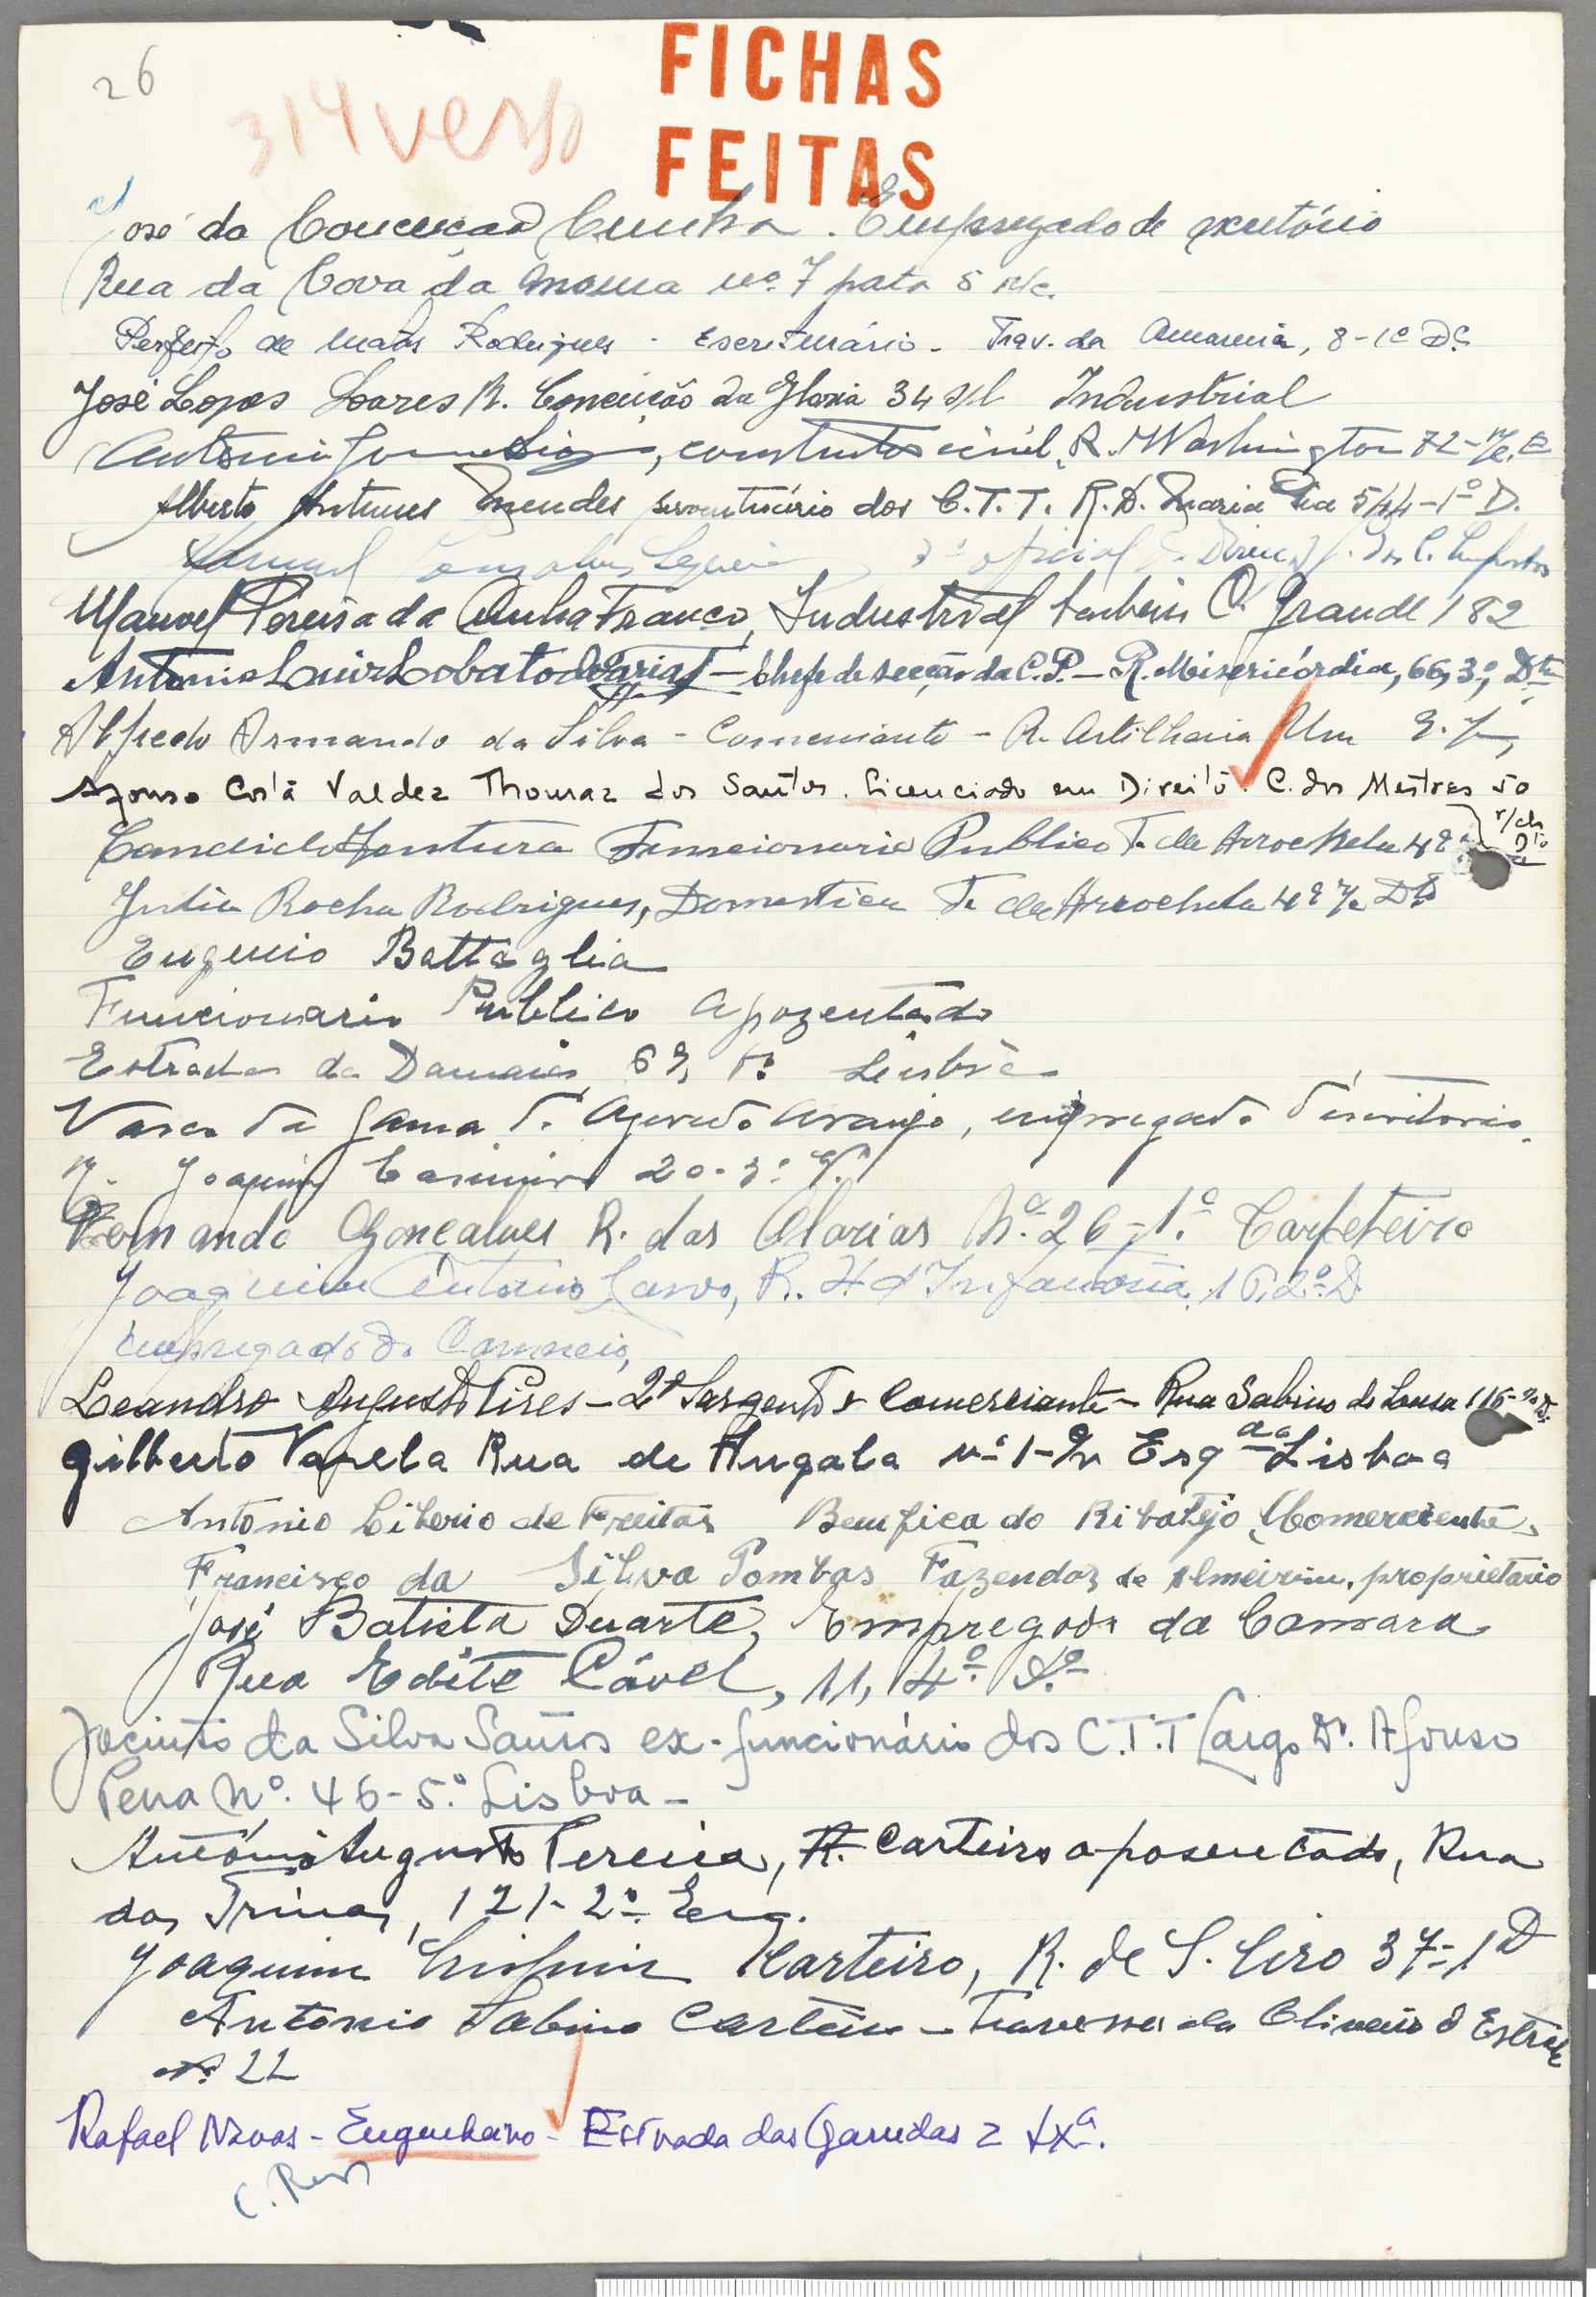 FICHAS
FEITAS
26
314 verso
José da Conceição Cunha. Empregado de escritório
Rua da Cova da Moura nº 7 pata 5 r/c.
Perfeito de Matos Rodrigues - Escriturário - Trav. da Amarela, 8-1º Dº
José Lopes Soares R. Conceição da Gloria 34 s/l Industrial
Antonio, construtor civil, R. Washington 72-r/c. E
Alberto Antunes Mendes serventuário dos C.T.T. R. D. Maria Pia 544-1º D.
Manuel Gonçalves oficial
Manoel Pereira da Cunha Franco, Industrial tambem C. Grande 182
Antonio Luiz Lobato de Faria - Chefe de secção da C.P. - R. Misericórdia, 66, 3º, Dto
Alfredo Armando da Silva - Comerciante - R. Artilharia Um
Afonso Costa Valdez Thomaz dos Santos. Licenciado em Direito. C. dos Mestres 50
r/ch Dto
Candido Ventura Funcionario Publico T. da Arrochela 42
Julia Rocha Rodrigues, Domestica T. da Arrochela 42 r/c Dto
Eugenio Battaglia
Funcionario Publico Apozentado
Estrada da Damaia, 69, 1º Lisbôa
Vasco da Gama d'Azevedo Araujo, empregado d'escritorio.
R. Joaquim Casimiro 20-3º
Fernando Gonçalves R. das Olarias Nº 26-1º Carpeteiro
Joaquim Antonio, R. 4 d'Infantaria, 16, 2º D
Empregado do Comercio,
Leandro Augusto Pires - 2º Sargento e Comerciante - Rua Sabino de Sousa 116-
Gilberto Varela Rua de Angola nº 1-r/c Esqda Lisboa
Antonio Liberio de Freitas Benfica do Ribatejo, Comerciente,
Francisco da Silva Pombas Fazendas de Almeirim, proprietario
José Batista Duarte, Empregado da Camara
Rua Edite Cável, 11, 4º Dº
Jacinto da Silva Santos ex-funcionário dos C.T.T Largo Dr. Afonso
Pena Nº. 46-5º Lisboa -
António Augusto Pereira, Carteiro aposentado, Rua
das Trinas, 121-2º Esq.
Joaquim Crispim Carteiro, R. de S. Ciro 37-1 D
Antonio Sabino Carteiro - Travessa da Oliveira á Estrela
nº 22
Rafael Navas - Engenheiro - Estrada das Garridas 2 Lxª.